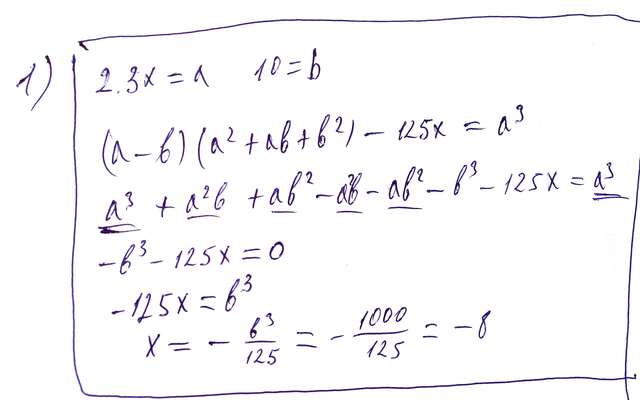 1) 2.3x = a 10 = b
(a - b)(a² + ab + b²) - 125x = a³
a³ + a²b + ab² - a²b - ab² - b³ - 125x = a³
-b³ - 125x = 0
-125x = b³
x = - b³/125 = - 1000/125 = -8